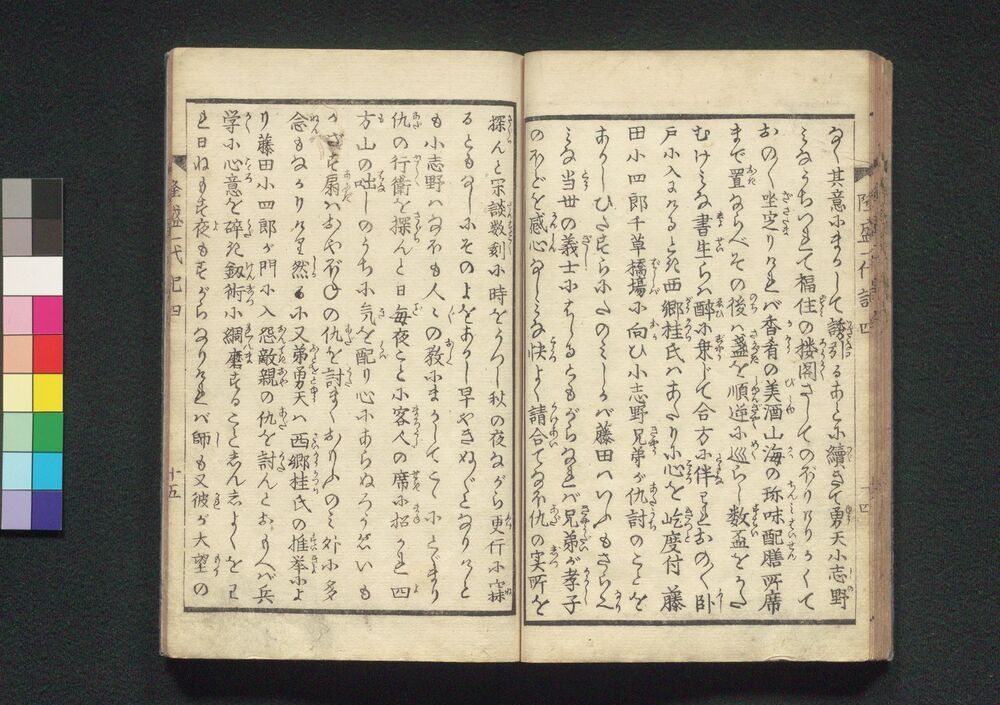 隆盛一代記四
十四
なく其意にまかして誘引るあとに續きて勇天小志野
みなうちつれて福住の楼閣さしてのぼりけりかくて
おのく坐定りければ香肴の美酒山海の珎味配膳所席
まで置ならべその後ハ盞を順逆に巡らし数盃をかた
むけみな書生らハ酔に乗じて合方に伴られおのく卧
戸に入にけると死西郷桂氏ハあたりに心を屹度付藤
田小四郎千草橋場に向ひ小志野兄弟が仇討のことを
あかしひたすらにたのみしが藤田ハいふもさらへ
みな当世の義士にはしるともがらなれば兄弟が孝子
のほどを感心なしみな快よく請合てなほ仇の実所を
探んと宗談数刻に時をうつし秋の夜ながら更行に寐
るともなしにそのよをあかし早やきぬぐとなりけり
も小志野ハなほも人々の教にまかしてとくにとゞまり
仇の行衛を探んと日毎夜ごとに客人の席に招かれ四
方山の咄しのうちに気を配り心にあらぬ
扇ハ の仇を討まくおりふのミ外に多
念もなかりけり然るに又弟勇天ハ西郷桂氏の推挙によ
り藤田小四郎が門に入怨敵親の仇を討んとおもへば兵
学に心意を碎死劔術に綢磨することしんしよくをわ
れ日ねもす夜もすがらなりければ師も又彼が大望の
隆盛一代記四
十五